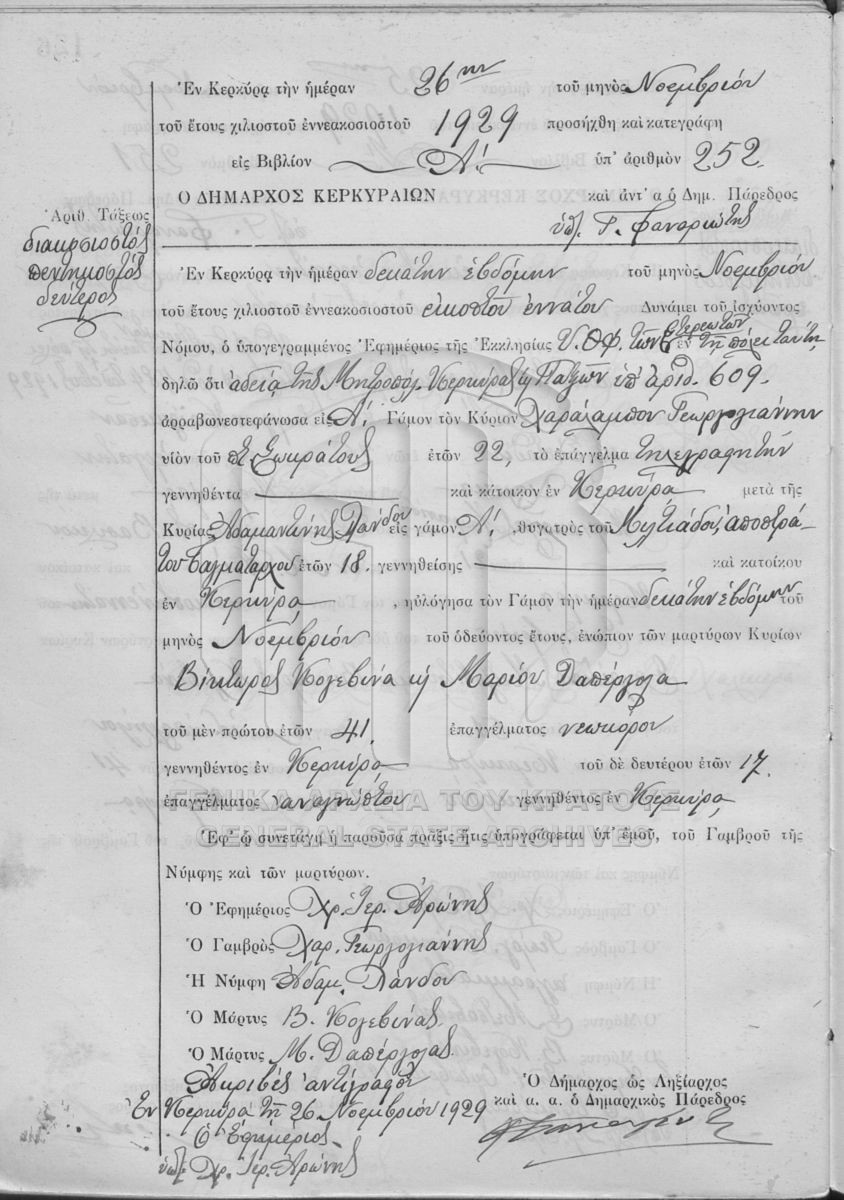 Ἐν Κερκύρᾳ τὴν ἡμέραν 26ην τοῦ μηνὸς Νοεμβρίου
τοῦ ἔτους χιλιοστοῦ ἐννεακοσιοστοῦ 1929 προσήχθη καὶ κατεγράφη
εἰς Βιβλίον Α΄. ὑπ' ἀριθμὸν 252.
Ο ΔΗΜΑΡΧΟΣ ΚΕΡΚΥΡΑΙΩΝ καὶ ἀντ' α ὁ Δημ. Πάρεδρος
ὑπ. Γ. Φαναριώτης
Ἀριθ. Τάξεως
διακοσιοστὸς
πεντηκοστὸς
δεύτερος
Ἐν Κερκύρᾳ τὴν ἡμέραν δεκάτην ἑβδόμην τοῦ μηνὸς Νοεμβρίου
τοῦ ἔτους χιλιοστοῦ ἐννεακοσιοστοῦ εἰκοστοῦ ἐννάτου Δυνάμει τοῦ ἰσχύοντος
Νόμου, ὁ ὑπογεγραμμένος Ἐφημέριος τῆς Ἐκκλησίας Υ. Θφ. τῶν ἐν τῇ πόλει ταύτῃ,
δηλῶ ὅτι ἀδείᾳ τῆς Μητροπόλ. Κερκύρας κ Παξῶν ὑπ' ἀριθ. 609.
ἀρραβωνεστεφάνωσα εἰς Α΄, Γάμον τὸν Κύριον Χαράλαμπον Γεωργογιάννην
υἱὸν τοῦ Σωκράτους ἐτῶν 22, τὸ ἐπάγγελμα τηλεγραφητὴν
γεννηθέντα καὶ κάτοικον ἐν Κερκύρᾳ μετὰ τῆς
Κυρίας Ἀδαμαντίνης Λάνδου εἰς γάμον Α΄, θυγατρὸς τοῦ Μιλτιάδου, ἀποστρά-
του Ταγματάρχου ἐτῶν 18. γεννηθείσης καὶ κατοίκου
ἐν Κερκύρᾳ, ηὐλόγησα τὸν Γάμον τὴν ἡμέραν δεκάτην ἑβδόμην τοῦ
μηνὸς Νοεμβρίου τοῦ ὁδεύοντος ἔτους, ἐνώπιον τῶν μαρτύρων Κυρίων
Βίκτωρος Κολεβινᾶ κ Μαρίου Δαπέργολα
τοῦ μὲν πρώτου ἐτῶν 41. ἐπαγγέλματος νεωκόρου
γεννηθέντος ἐν Κερκύρᾳ τοῦ δὲ δευτέρου ἐτῶν 17.
ἐπαγγέλματος ἀναγνώστου γεννηθέντος ἐν Κερκύρᾳ
ΓΕΝΙΚΑ ΑΡΧΕΙΑ ΤΟΥ ΚΡΑΤΟΥΣ
GENERAL STATE ARCHIVES
Ἐφ' ᾧ συνετάγη ἡ παροῦσα πρᾶξις ἥτις ὑπογράφεται ὑπ' ἐμοῦ, τοῦ Γαμβροῦ τῆς
Νύμφης καὶ τῶν μαρτύρων.
Ὁ Ἐφημέριος Χρ. Ἱερ. Ἀρώνης
Ὁ Γαμβρὸς Χαρ. Γεωργογιάννης
Ἡ Νύμφη Ἀδαμ. Λάνδου
Ὁ Μάρτυς Β. Κολεβινᾶς
Ὁ Μάρτυς Μ. Δαπέργολας
Ἀκριβὲς ἀντίγραφον
Ἐν Κερκύρᾳ τῇ 26 Νοεμβρίου 1929
Ὁ Ἐφημέριος
ὑπ. Χρ. Ἱερ. Ἀρώνης
Ὁ Δήμαρχος ὡς Ληξίαρχος
καὶ α. α. ὁ Δημαρχικὸς Πάρεδρος